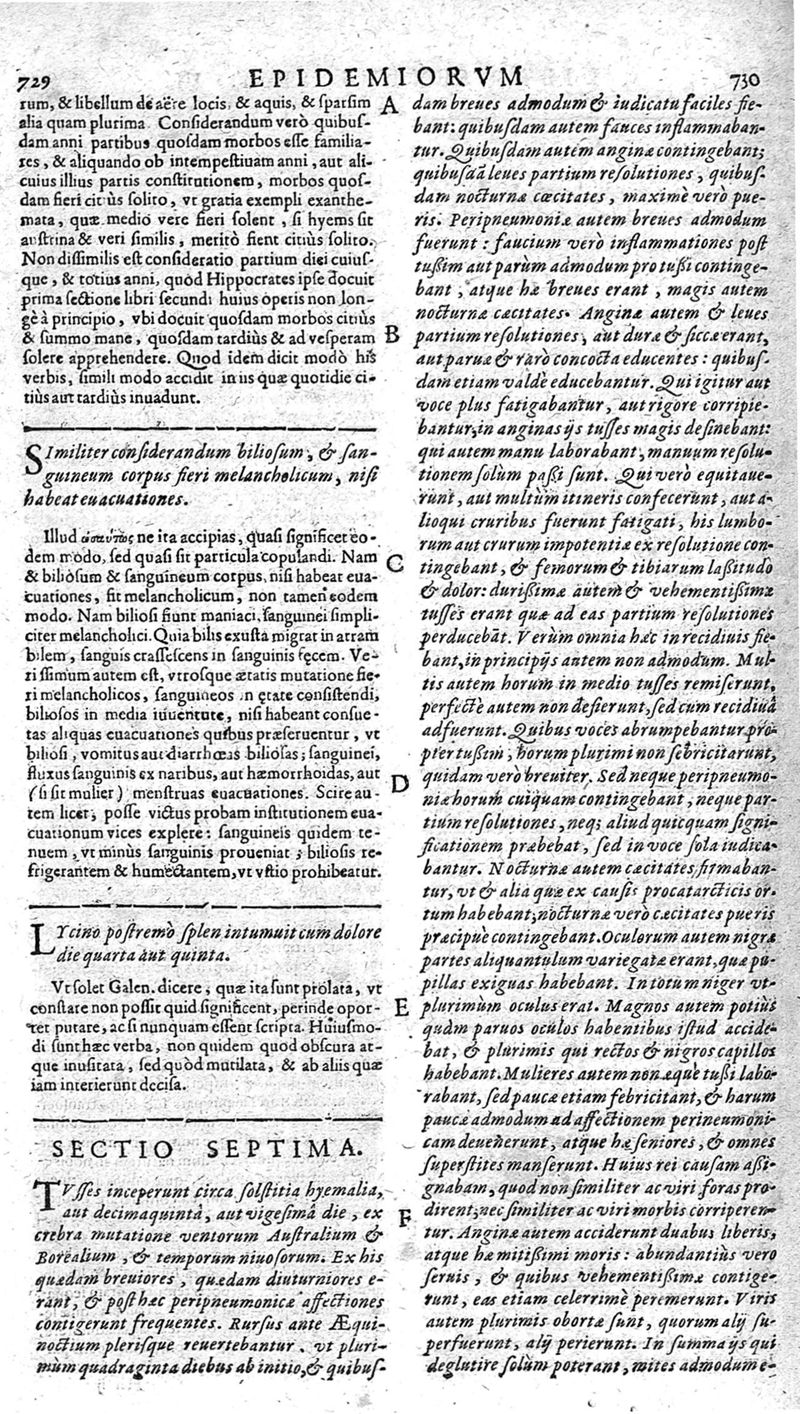 729 EPIDEMIORVM 730
rum, & libellum de aëre locis, & aquis, & sparsim
alia quam plurima. Considerandum verò quibus-
dam anni partibus quosdam morbos esse familia-
res, & aliquando ob intempestiuam anni, aut ali-
cuius illius partis constitutionem, morbos quos-
dam fieri citiùs solito, vt gratia exempli exanthe-
mata, quæ medio vere fieri solent, si hyems sit
austrina & veri similis, meritò fient citiùs solito.
Non dissimilis est consideratio partium diei cuius-
que, & totius anni, quòd Hippocrates ipse docuit
prima sectione libri secundi huius operis non lon-
gè à principio, vbi docuit quosdam morbos citiùs
& summo mane, quosdam tardiùs & ad vesperam
solere apprehendere. Quod idem dicit modò his
verbis, simili modo accidit in iis quæ quotidie ci-
tiùs aut tardiùs inuadunt.
SImiliter considerandum biliosum, & san-
guineum corpus fieri melancholicum, nisi
habeat euacuationes.
Illud ὡσαύτως ne ita accipias, quasi significet eo-
dem modo, sed quasi sit particula copulandi. Nam
& biliosum & sanguineum corpus, nisi habeat eua-
cuationes, fit melancholicum, non tamen eodem
modo. Nam biliosi fiunt maniaci, sanguinei simpli-
citer melancholici. Quia bilis exusta migrat in atram
bilem, sanguis crassescens in sanguinis fęcem. Ve-
rissimum autem est, vtrosque ætatis mutatione fie-
ri melancholicos, sanguineos in ętate consistendi,
biliosos in media iuuentute, nisi habeant consue-
tas aliquas euacuationes quibus præseruentur, vt
biliosi, vomitus aut diarrhœas biliosas; sanguinei,
fluxus sanguinis ex naribus, aut hæmorrhoidas, aut
(si sit mulier) menstruas euacuationes. Scire au-
tem licet, posse victus probam institutionem eua-
cuationum vices explere: sanguineis quidem te-
nuem, vt minùs sanguinis proueniat; biliosis re-
frigerantem & humectantem, vt vstio prohibeatur.
LYcino postremò splen intumuit cum dolore
die quarta aut quinta.
Vt solet Galen. dicere, quæ ita sunt prolata, vt
constare non possit quid significent, perinde opor-
tet putare, ac si nunquam essent scripta. Huiusmo-
di sunt hæc verba, non quidem quod obscura at-
que inusitata, sed quòd mutilata, & ab aliis quæ
iam interierunt decisa.
SECTIO SEPTIMA.
TVsses inceperunt circa solstitia hyemalia,
aut decimaquintâ, aut vigesimâ die, ex
crebra mutatione ventorum Australium &
Borealium, & temporum niuosorum. Ex his
quædam breuiores, quædam diuturniores e-
rant, & post hæc peripneumonicæ affectiones
contigerunt frequentes. Rursus ante Æqui-
noctium plerisque reuertebantur, vt pluri-
mùm quadraginta diebus ab initio, & quibus-
A
B
C
D
E
F
dam breues admodum & iudicatu faciles fie-
bant: quibusdam autem fauces inflammaban-
tur. Quibusdam autem anginæ contingebant;
quibusdã leues partium resolutiones, quibus-
dam nocturnæ cœcitates, maximè verò pue-
ris. Peripneumoniæ autem breues admodum
fuerunt: faucium verò inflammationes post
tußim aut parùm admodum pro tußi continge-
bant, atque hæ breues erant, magis autem
nocturnæ cæcitates. Anginæ autem & leues
partium resolutiones, aut duræ & siccæ erant,
aut parua & rarò concocta educentes: quibus-
dam etiam valdè educebantur. Qui igitur aut
voce plus fatigabantur, aut rigore corripie-
bantur, in anginas ijs tusses magis desinebant:
qui autem manu laborabant, manuum resolu-
tionem solùm paßi sunt. Qui verò equitaue-
runt, aut multùm itineris confecerunt, aut a-
lioqui cruribus fuerunt fatigati, his lumbo-
rum aut crurum impotentiæ ex resolutione con-
tingebant, & femorum & tibiarum laßitudo
& dolor: durißimæ autem & vehementißimæ
tusses erant quæ ad eas partium resolutiones
perducebãt. Verùm omnia hæc in recidiuis fie-
bant, in principijs autem non admodum. Mul-
tis autem horum in medio tusses remiserunt,
perfectè autem non defierunt, sed cum recidiuâ
adfuerunt. Quibus voces abrumpebantur pro-
pter tußim, horum plurimi non febricitarunt,
quidam verò breuiter. Sed neque peripneumo-
niæ horum cuiquam contingebant, neque par-
tium resolutiones, neq; aliud quicquam signi-
ficationem præbebat, sed in voce sola iudica-
bantur. Nocturnæ autem cæcitates firmaban-
tur, vt & alia quæ ex causis procatarcticis or-
tum habebant; nocturnæ verò cæcitates pueris
præcipuè contingebant. Oculorum autem nigræ
partes aliquantulum variegatæ erant, quæ pu-
pillas exiguas habebant. In totum niger vt-
plurimùm oculus erat. Magnos autem potiùs
quàm paruos oculos habentibus istud accide-
bat, & plurimis qui rectos & nigros capillos
habebant. Mulieres autem non æque tußi labo-
rabant, sed paucæ etiam febricitant, & harum
paucæ admodum ad affectionem perineumoni-
cam deuenerunt, atque hæ seniores, & omnes
superstites manserunt. Huius rei causam aßi-
gnabam, quod non similiter ac viri foras pro-
dirent; nec similiter ac viri morbis corriperen-
tur. Anginæ autem acciderunt duabus liberis,
atque hæ mitißimi moris: abundantiùs vero
seruis, & quibus vehementißimæ contige-
runt, eas etiam celerrimè peremerunt. Viris
autem plurimis obortæ sunt, quorum alij su-
perfuerunt, alij perierunt. In summa ijs qui
deglutire solùm poterant, mites admodum e-